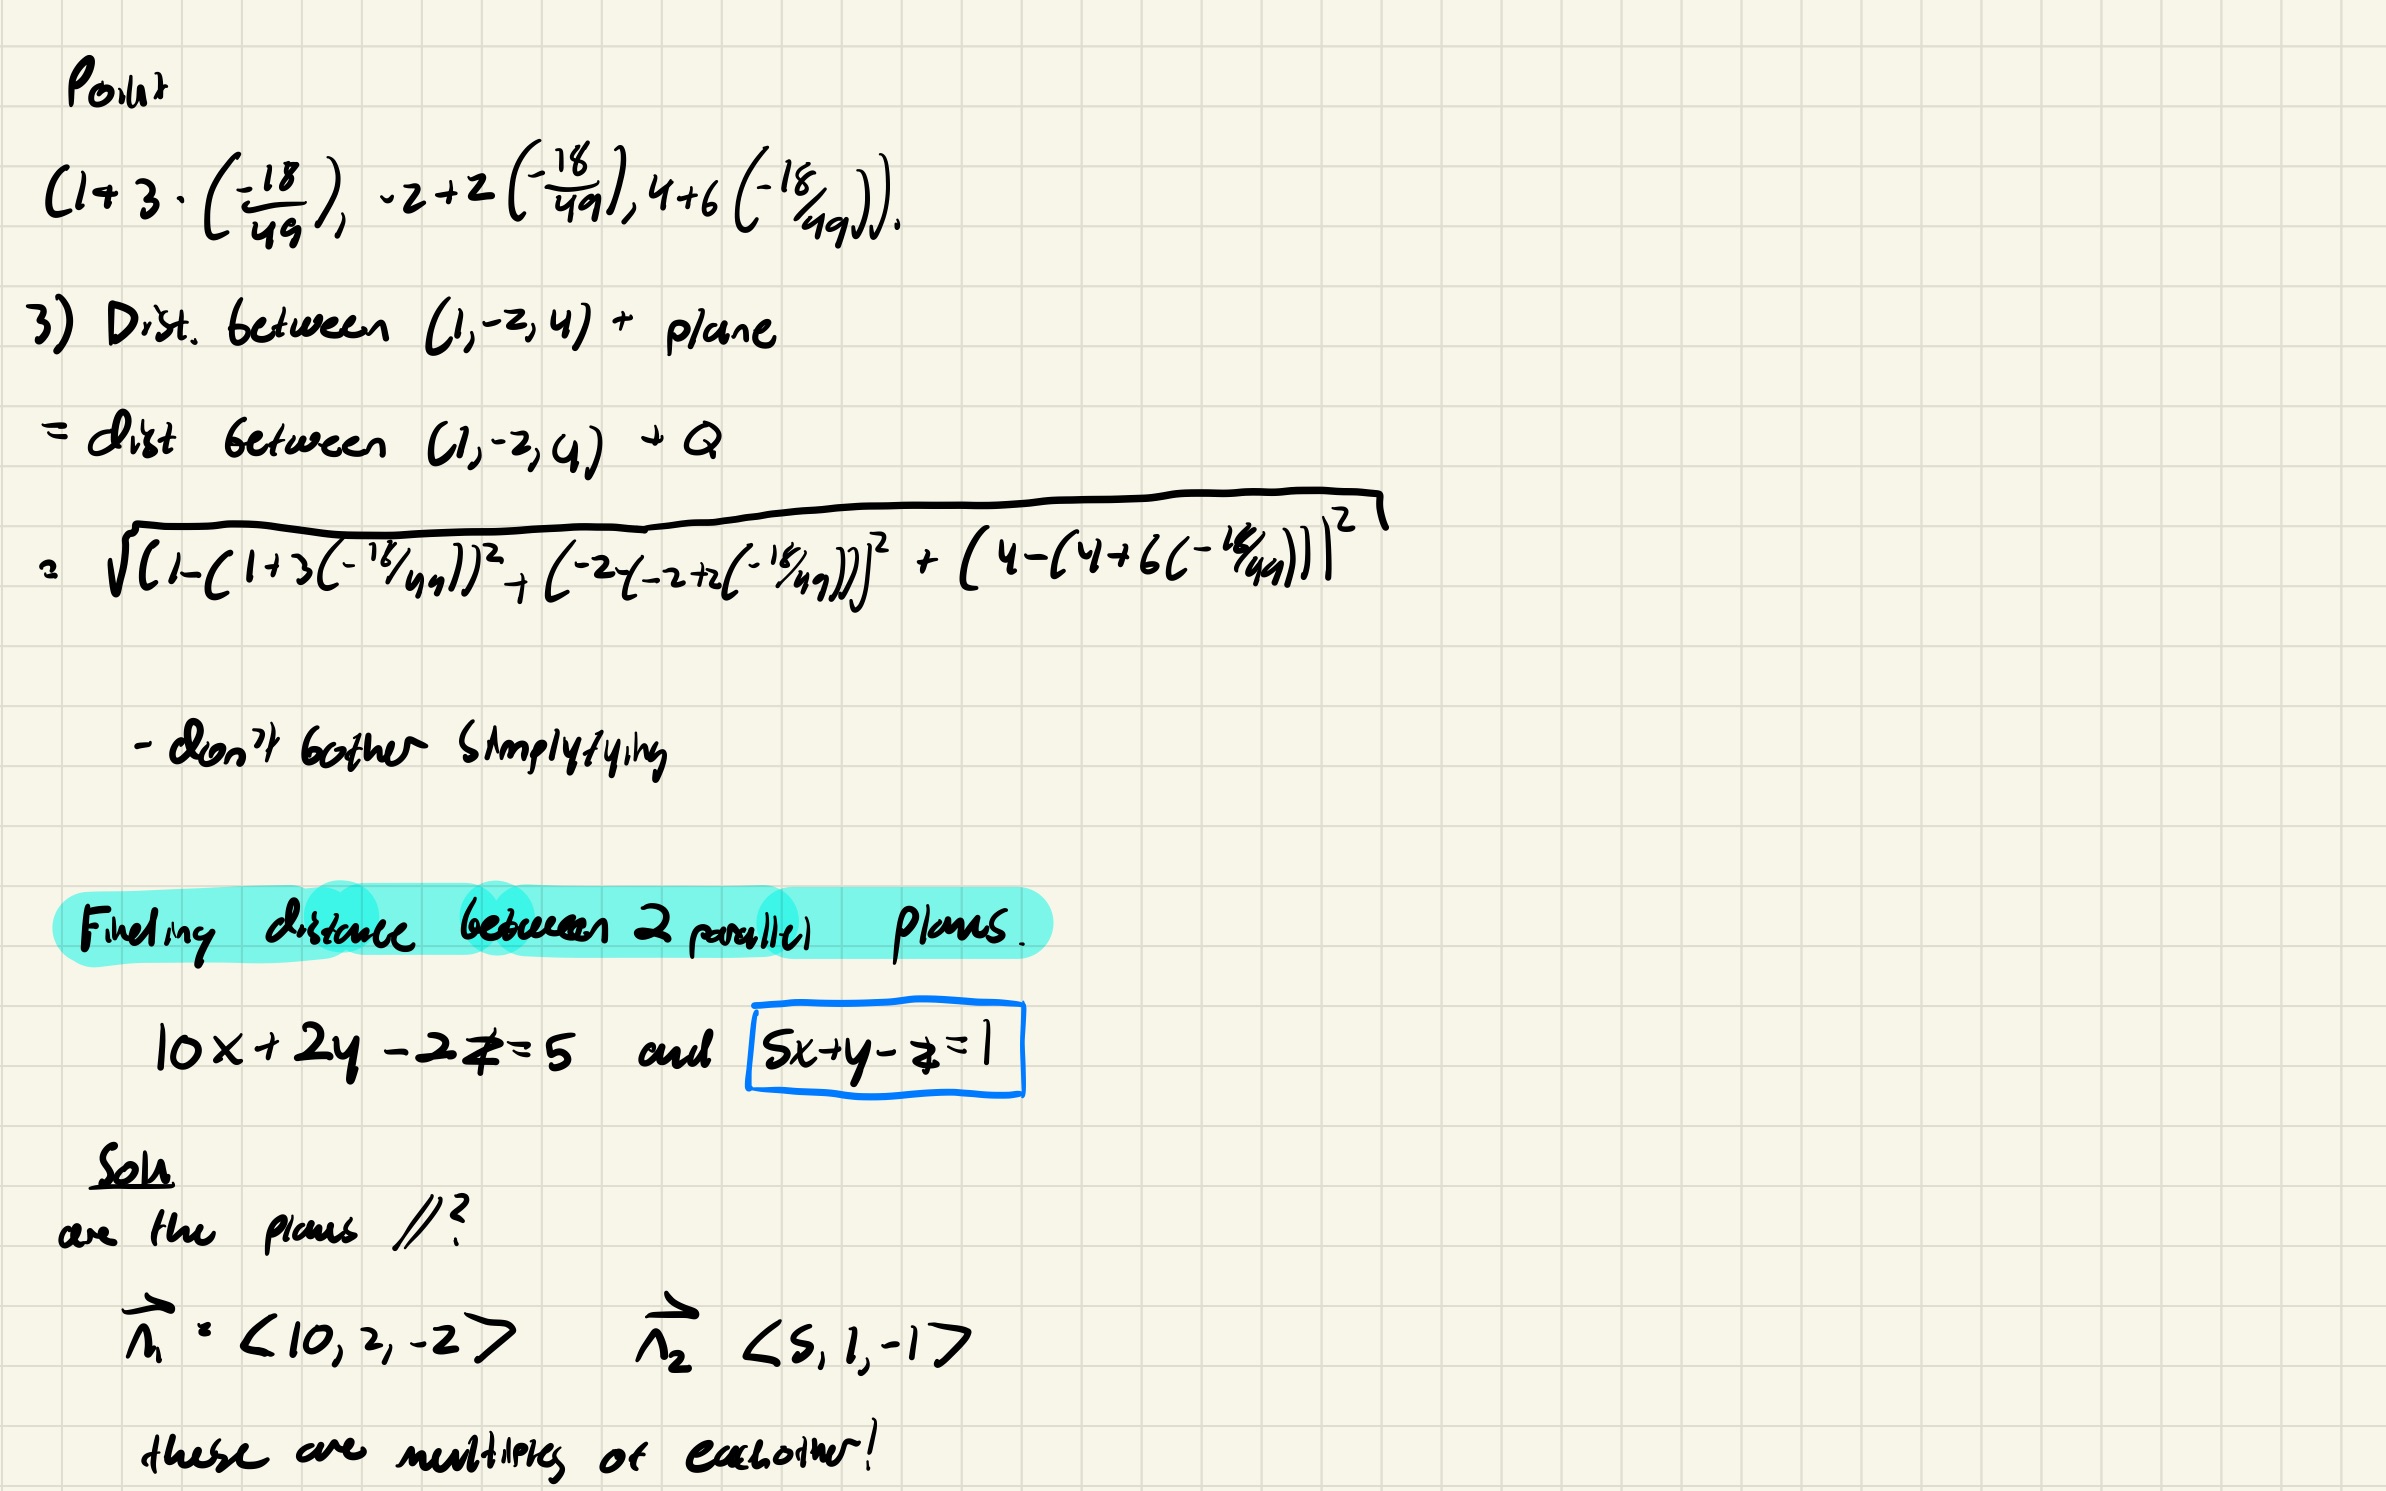 Point
(1+3·(-18/49), -2+2(-18/49), 4+6(-18/49)).
3) Dist. between (1,-2,4) + plane
= dist between (1,-2,4) + Q
= √(1-(1+3(-18/49))²+(-2-(-2+2(-18/49)))²+(4-(4+6(-18/49)))²
- don't bother simplyfying
Finding distance between 2 parallel planes.
10x+2y-2z=5 and 5x+y-z=1
Soln
are the planes //?
n₁ = <10, 2, -2> n₂ <5, 1, -1>
these are multiples of eachother!